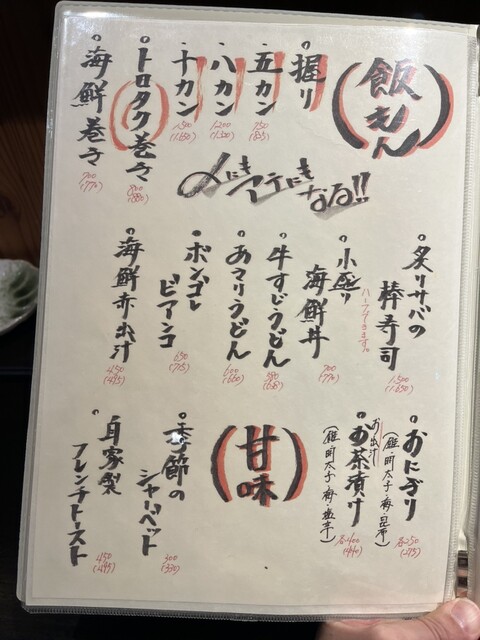 飯もん
握り
五カン
750
(825)
八カン
1,200
十カン
1,500
(1,650)
トロタク巻き
800
(880)
海鮮巻き
700
(770)
〆にもアテにもなる!!
炙りサバの
棒寿司
1,500
(1,650)
ハーフもできます。
小盛り
海鮮丼
700
(770)
牛すじうどん
あさりうどん
600
(660)
ボンゴレ
ビアンコ
650
(715)
海鮮赤出汁
450
(495)
おにぎり
(鮭・明太子・梅・昆布)
各250
(275)
お出汁
お茶漬け
(鮭・明太子・梅・塩辛)
各400
(440)
甘味
季節の
シャーベット
300
(330)
自家製
フレンチトースト
450
(495)